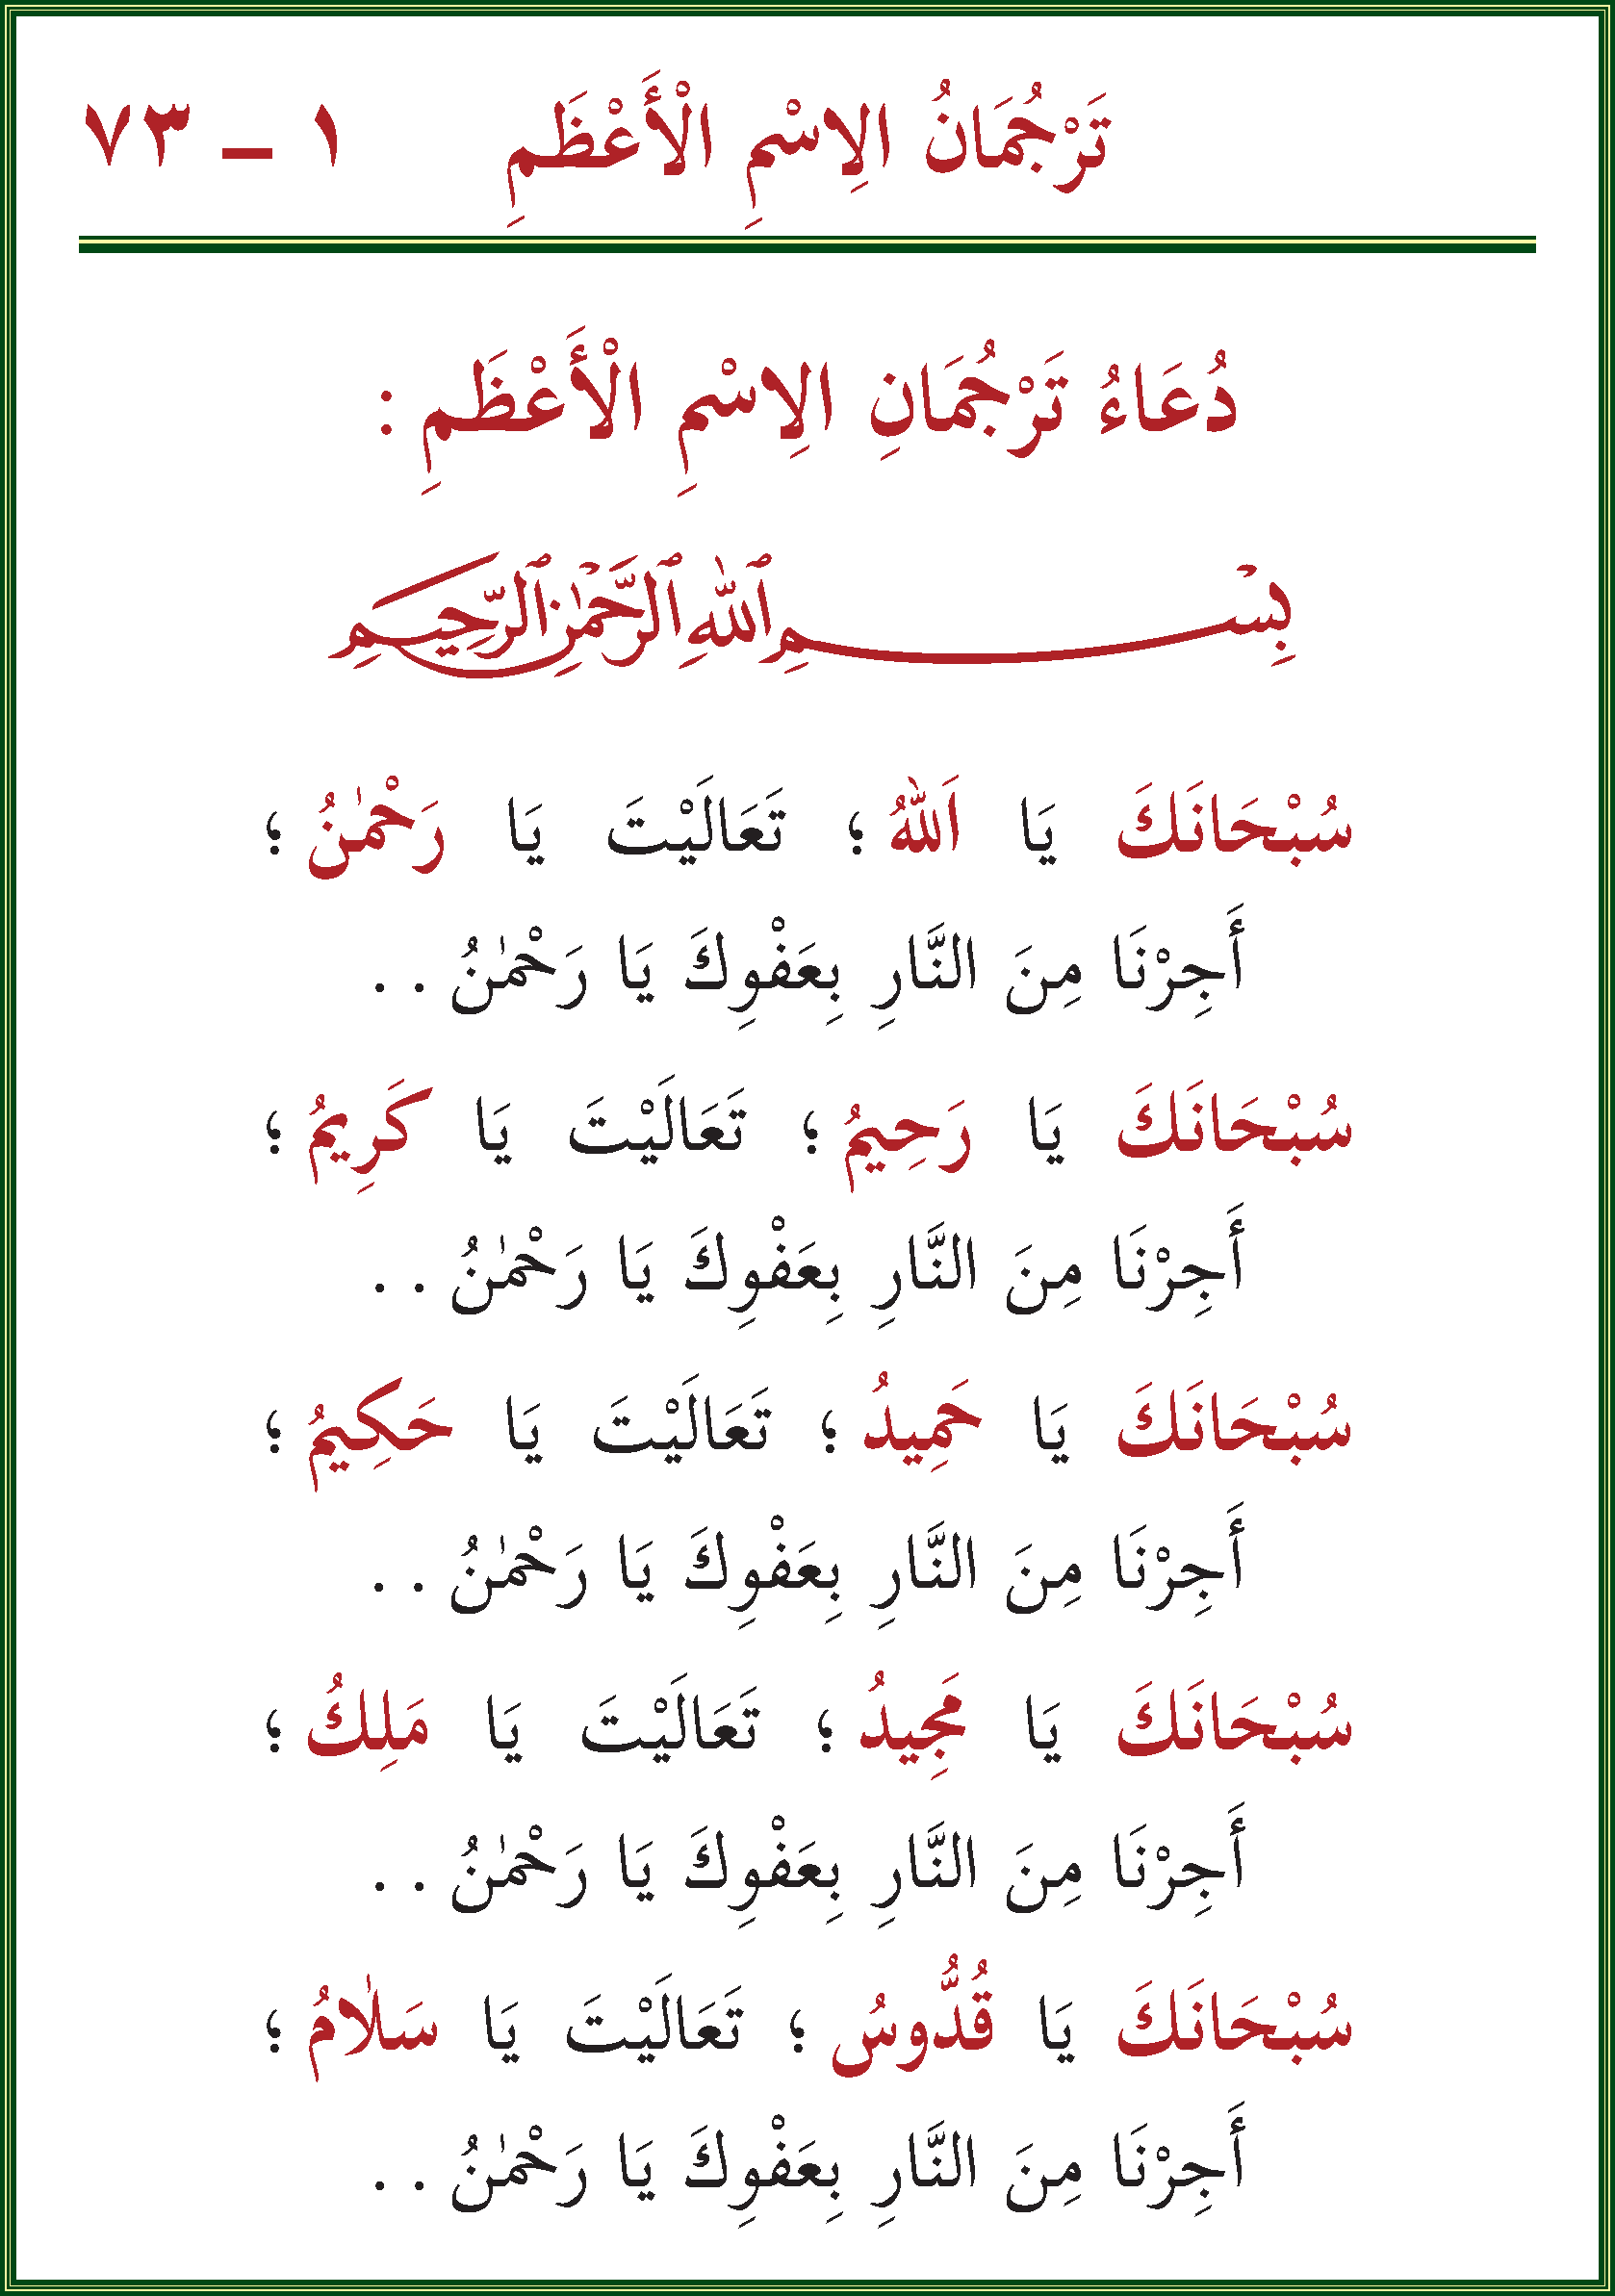 تَرْجُمَانُ الِاسْمِ الْأَعْظَمِ ١ – ٧٣
دُعَاءُ تَرْجُمَانِ الِاسْمِ الْأَعْظَمِ :
بِسْمِ ٱللّٰهِ ٱلرَّحْمٰنِ ٱلرَّحِيمِ
سُبْحَانَكَ يَا اَللّٰهُ ؛ تَعَالَيْتَ يَا رَحْمٰنُ ؛
أَجِرْنَا مِنَ النَّارِ بِعَفْوِكَ يَا رَحْمٰنُ . .
سُبْحَانَكَ يَا رَحِيمُ ؛ تَعَالَيْتَ يَا كَرِيمُ ؛
أَجِرْنَا مِنَ النَّارِ بِعَفْوِكَ يَا رَحْمٰنُ . .
سُبْحَانَكَ يَا حَمِيدُ ؛ تَعَالَيْتَ يَا حَكِيمُ ؛
أَجِرْنَا مِنَ النَّارِ بِعَفْوِكَ يَا رَحْمٰنُ . .
سُبْحَانَكَ يَا مَجِيدُ ؛ تَعَالَيْتَ يَا مَلِكُ ؛
أَجِرْنَا مِنَ النَّارِ بِعَفْوِكَ يَا رَحْمٰنُ . .
سُبْحَانَكَ يَا قُدُّوسُ ؛ تَعَالَيْتَ يَا سَلٰامُ ؛
أَجِرْنَا مِنَ النَّارِ بِعَفْوِكَ يَا رَحْمٰنُ . .